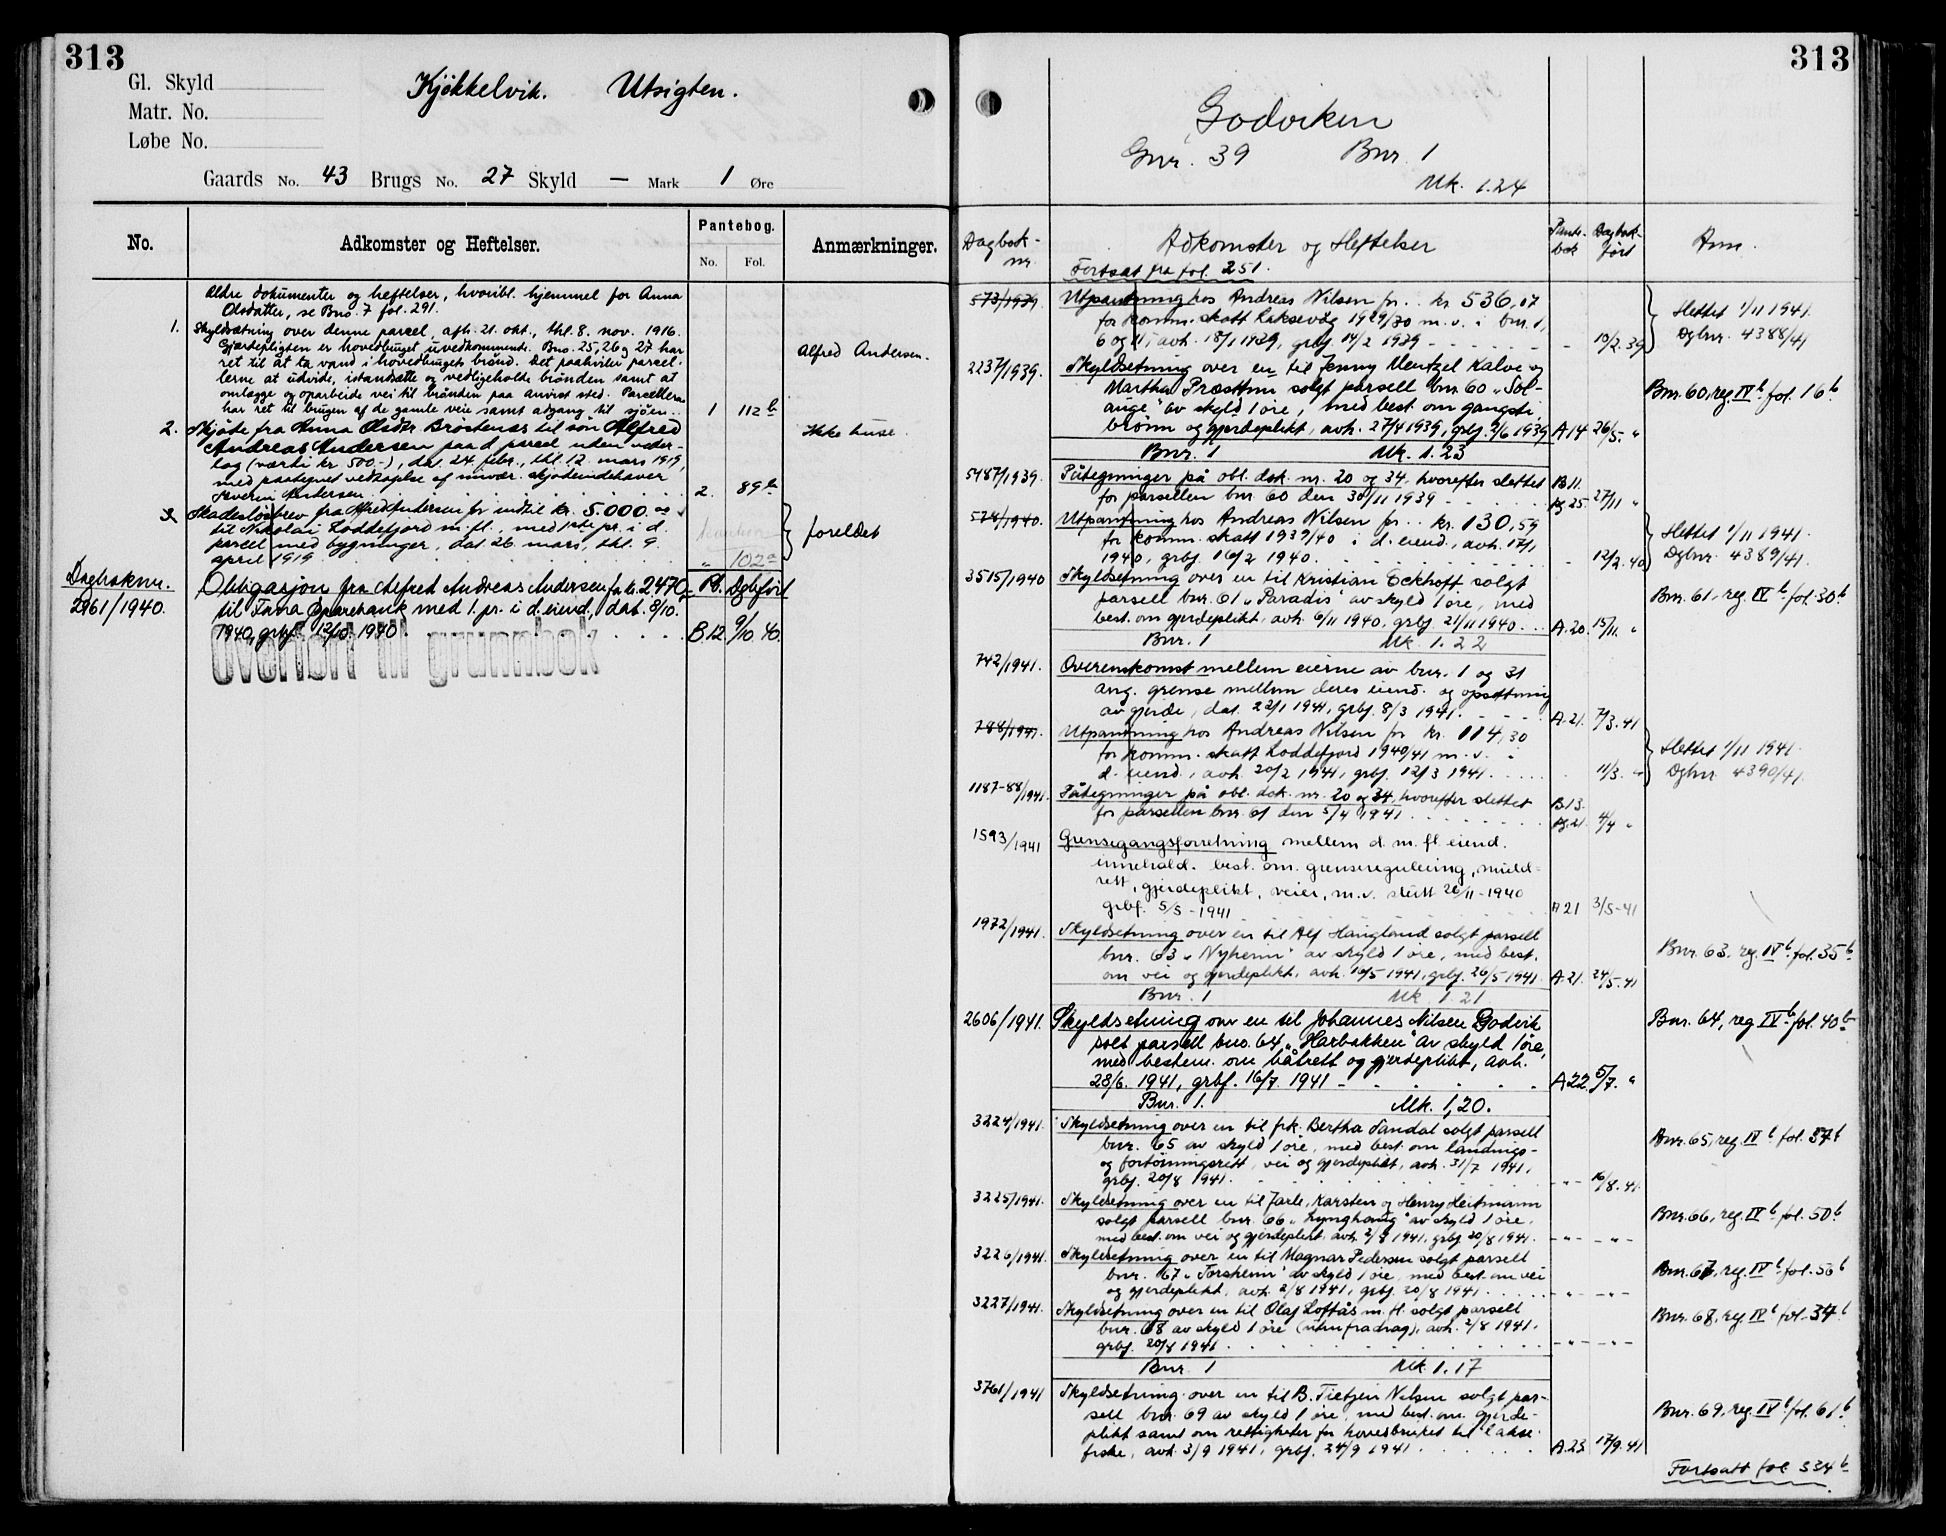 313
Gl. Skyld
Matr. No.
Løbe No.
Kjøkkelvik. Utsigten.
Gaards No. 43 Brugs No. 27 Skyld — Mark 1 Øre
No. Adkomster og Heftelser. Pantebog. No. Fol. Anmærkninger.
Ældre dokumenter og heftelser, hvoribl. hjemmel for Anna
Olsdatter, se Bno. 7 fol. 291.
1. Skyldsætning over denne parcel, afh. 21. okt., thl. 8. nov. 1916.
Gjærdepligten er hovedbruget uvedkommende. Bno. 25, 26 og 27 har
ret til at ta vand i hovedbrugets brønd. Det paahviler parcel-
lerne at utvide, istandsætte og vedligeholde brønden samt at
omlægge og oparbeide vei til brønden paa anvist sted. Parcellerne
har ret til brugen af de gamle veie samt adgang til sjøen.. 1 112b
Alfred Andersen.
2. Skjøte fra Anna Olsdtr. Brøstenes til søn Alfred
Andreas Andersen paa d. parcel uden veder-
lag (værdi kr. 500.-), dat. 24. febr., thl. 12. mars 1919,
med paategnet vedtagelse af nuvær. skjødeindehaver
Severin Andersen 2. 89b
Ikke huse.
3. Skadesløsbrev fra Alfred Andersen for indtil kr. 5.000.
til Nikolai Loddefjord m. fl. med 1ste pr. i d.
parcel med bygninger, dat. 26. mars, thl. 9.
april 1919 " 102a
foreldet
Dagboknr.
2961/1940.
Obligasjon fra Alfred Andreas Andersen for kr. 2470,- Pb. Dgbført
til Fana Sparebank med 1. pr. i d. eiend., dat. 8/10.
1940, grbf. 12/10. 1940. B.12. 9/10. 40.
Overført til grunnbok
313
Godviken
Gnr. 39 Bnr. 1
Mk. 1.24
Dagbok-nr. Adkomster og Heftelser Pante-bok Dagbok-ført Anm.
Fortsat fra fol. 251.
573/1939. Utpantning hos Andreas Nilsen for .. kr. 536,07
for komm. skatt Laksevåg 1929/30 m. v. i bnr. 1,
6 og 11, avh. 18/1 1939, grbf. 14/2 1939 - 10/2. 39
Slettet 1/11 1941.
Dgbnr. 4388/41
2237/1939. Skyldsetning over en til Jenny Mentzel Kalve og
Martha Præsttun solgt parsell bnr. 60 "Sol-
auge" av skyld 1 øre, med best. om gangsti,
brønn og gjerdeplikt, avh. 27/4 1939, grbf. 2/6 1939 A.14. 26/5. "
Bnr. 60, reg. IVb fol. 16b
Bnr. 1 Mk. 1.23
5487/1939. Påtegninger på obl. dok. nr. 20 og 34, hvorefter slettet
for parsellen bnr. 60 den 30/11 1939 B.11. Ag.25. 27/11 "
574/1940. Utpantning hos Andreas Nilsen for .. kr. 130,59
for komm. skatt 1939/40 i d. eiend., avh. 17/1
1940, grbf. 16/2 1940 - 12/2. 40
Slettet 1/11 1941.
Dgbnr. 4389/41.
3515/1940 Skyldsetning over en til Kristian Eckhoff solgt
parsell bnr. 61 "Paradis" av skyld 1 øre, med
best. om gjerdeplikt, avh. 6/11 1940, grbf. 21/11 1940 A.20. 15/11. "
Bnr. 61, reg. IVb fol. 30b
Bnr. 1 Mk. 1.22
742/1941. Overenskomst mellem eierne av bnr. 1 og 31
ang. grense mellem deres eiend. og opsettning
av gjerde, dat. 22/1 1941, grbf. 8/3 1941. A.21. 7/3. 41
788/1941. Utpantning hos Andreas Nilsen for kr. 114,30
for komm. skatt Loddefjord 1940/41 m. v. i
d. eiend., avh. 20/2 1941, grbf. 12/3 1941. 11/3. "
Slettet 1/11 1941.
Dgbnr. 4390/41.
1187-88/1941. Påtegninger på obl. dok. nr. 20 og 34, hvorefter slettet
for parsellen bnr. 61 den 5/4 1941 B.13. Ag.21. 4/4 "
1593/1941 Grensegangsforretning mellem d. m. fl. eiend.
innehold. best. om grenseregulering,
rett, gjerdeplikt, veier, m.v. slutt 26/11-1940
grbf. 5/5-1941 A 21 3/5-41
1972/1941. Skyldsetning over en til Alf Haugland solgt parsell
bnr. 63 "Nyheim" av skyld 1 øre, med best.
om vei og gjerdeplikt, avh. 10/5 1941, grbf. 26/5 1941. A.21. 24/5-41
Bnr. 63. reg. IVb fol. 35b
Bnr. 1 Mk. 1.21
2606/1941. Skyldsetning over en til Johannes Nilsen Godvik
solt parsell bno. 64 "Harbakken" av skyld 1 øre,
med bestem. om båtrett og gjerdeplikt, avh.
28/6. 1941, grbf. 16/7. 1941 A 22. 5/7. "
Bnr. 64, reg IVb fol. 40b
Bnr. 1. Mk. 1,20.
3224/1941. Skyldsetning over en til frk. Bertha Sandal solgt parsell
bnr. 65 av skyld 1 øre, med best. om landings-
og fortøiningsrett, vei og gjerdeplikt, avh. 31/7 1941,
grbf. 20/8 1941. - " - 16/8. 41.
Bnr. 65, reg. IVb fol. 37b
3225/1941. Skyldsetning over en til Jarle, Karsten og Henry Heitmann
solgt parsell bnr. 66 "Lynghaug" av skyld 1 øre,
med best. om vei og gjerdeplikt, avh. 2/8 1941, grbf. 20/8 1941. - " - - " -
Bnr. 66, reg. IVb fol. 50b
3226/1941. Skyldsetning over en til Magnar Pedersen solgt parsell
bnr. 67 "Forsheim" av skyld 1 øre, med best. om vei
og gjerdeplikt, avh. 2/8 1941, grbf. 20/8 1941. - " - - " -
Bnr. 67, reg. IVb fol. 56b
3227/1941. Skyldsetning over en til Olaf Loftås m. fl. solgt parsell
bnr. 68 av skyld 1 øre (uten fradrag), avh. 2/8 1941,
grbf. 20/8 1941. - " - - " -
Bnr. 68, reg. IVb fol. 34b
Bnr. 1 Mk. 1.17
3761/1941 Skyldsetning over en til B. Tietjen Nilsen solgt par-
sell bnr. 69 av skyld 1 øre, med best. om gjerde-
plikt samt om rettigheter for hovedbruket til lakse-
fiske, avh. 3/9 1941, grbf. 24/9 1941 A.23 17/9. 41
Bnr. 69, reg. IVb fol. 61b
Fortsatt fol. 334b